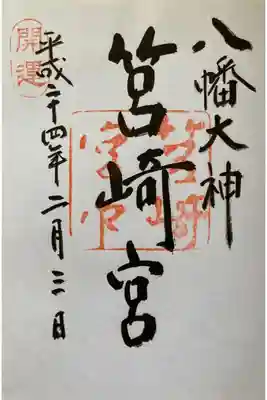 八幡大神
筥崎宮
筥崎宮
開運
平成二十四年二月三日